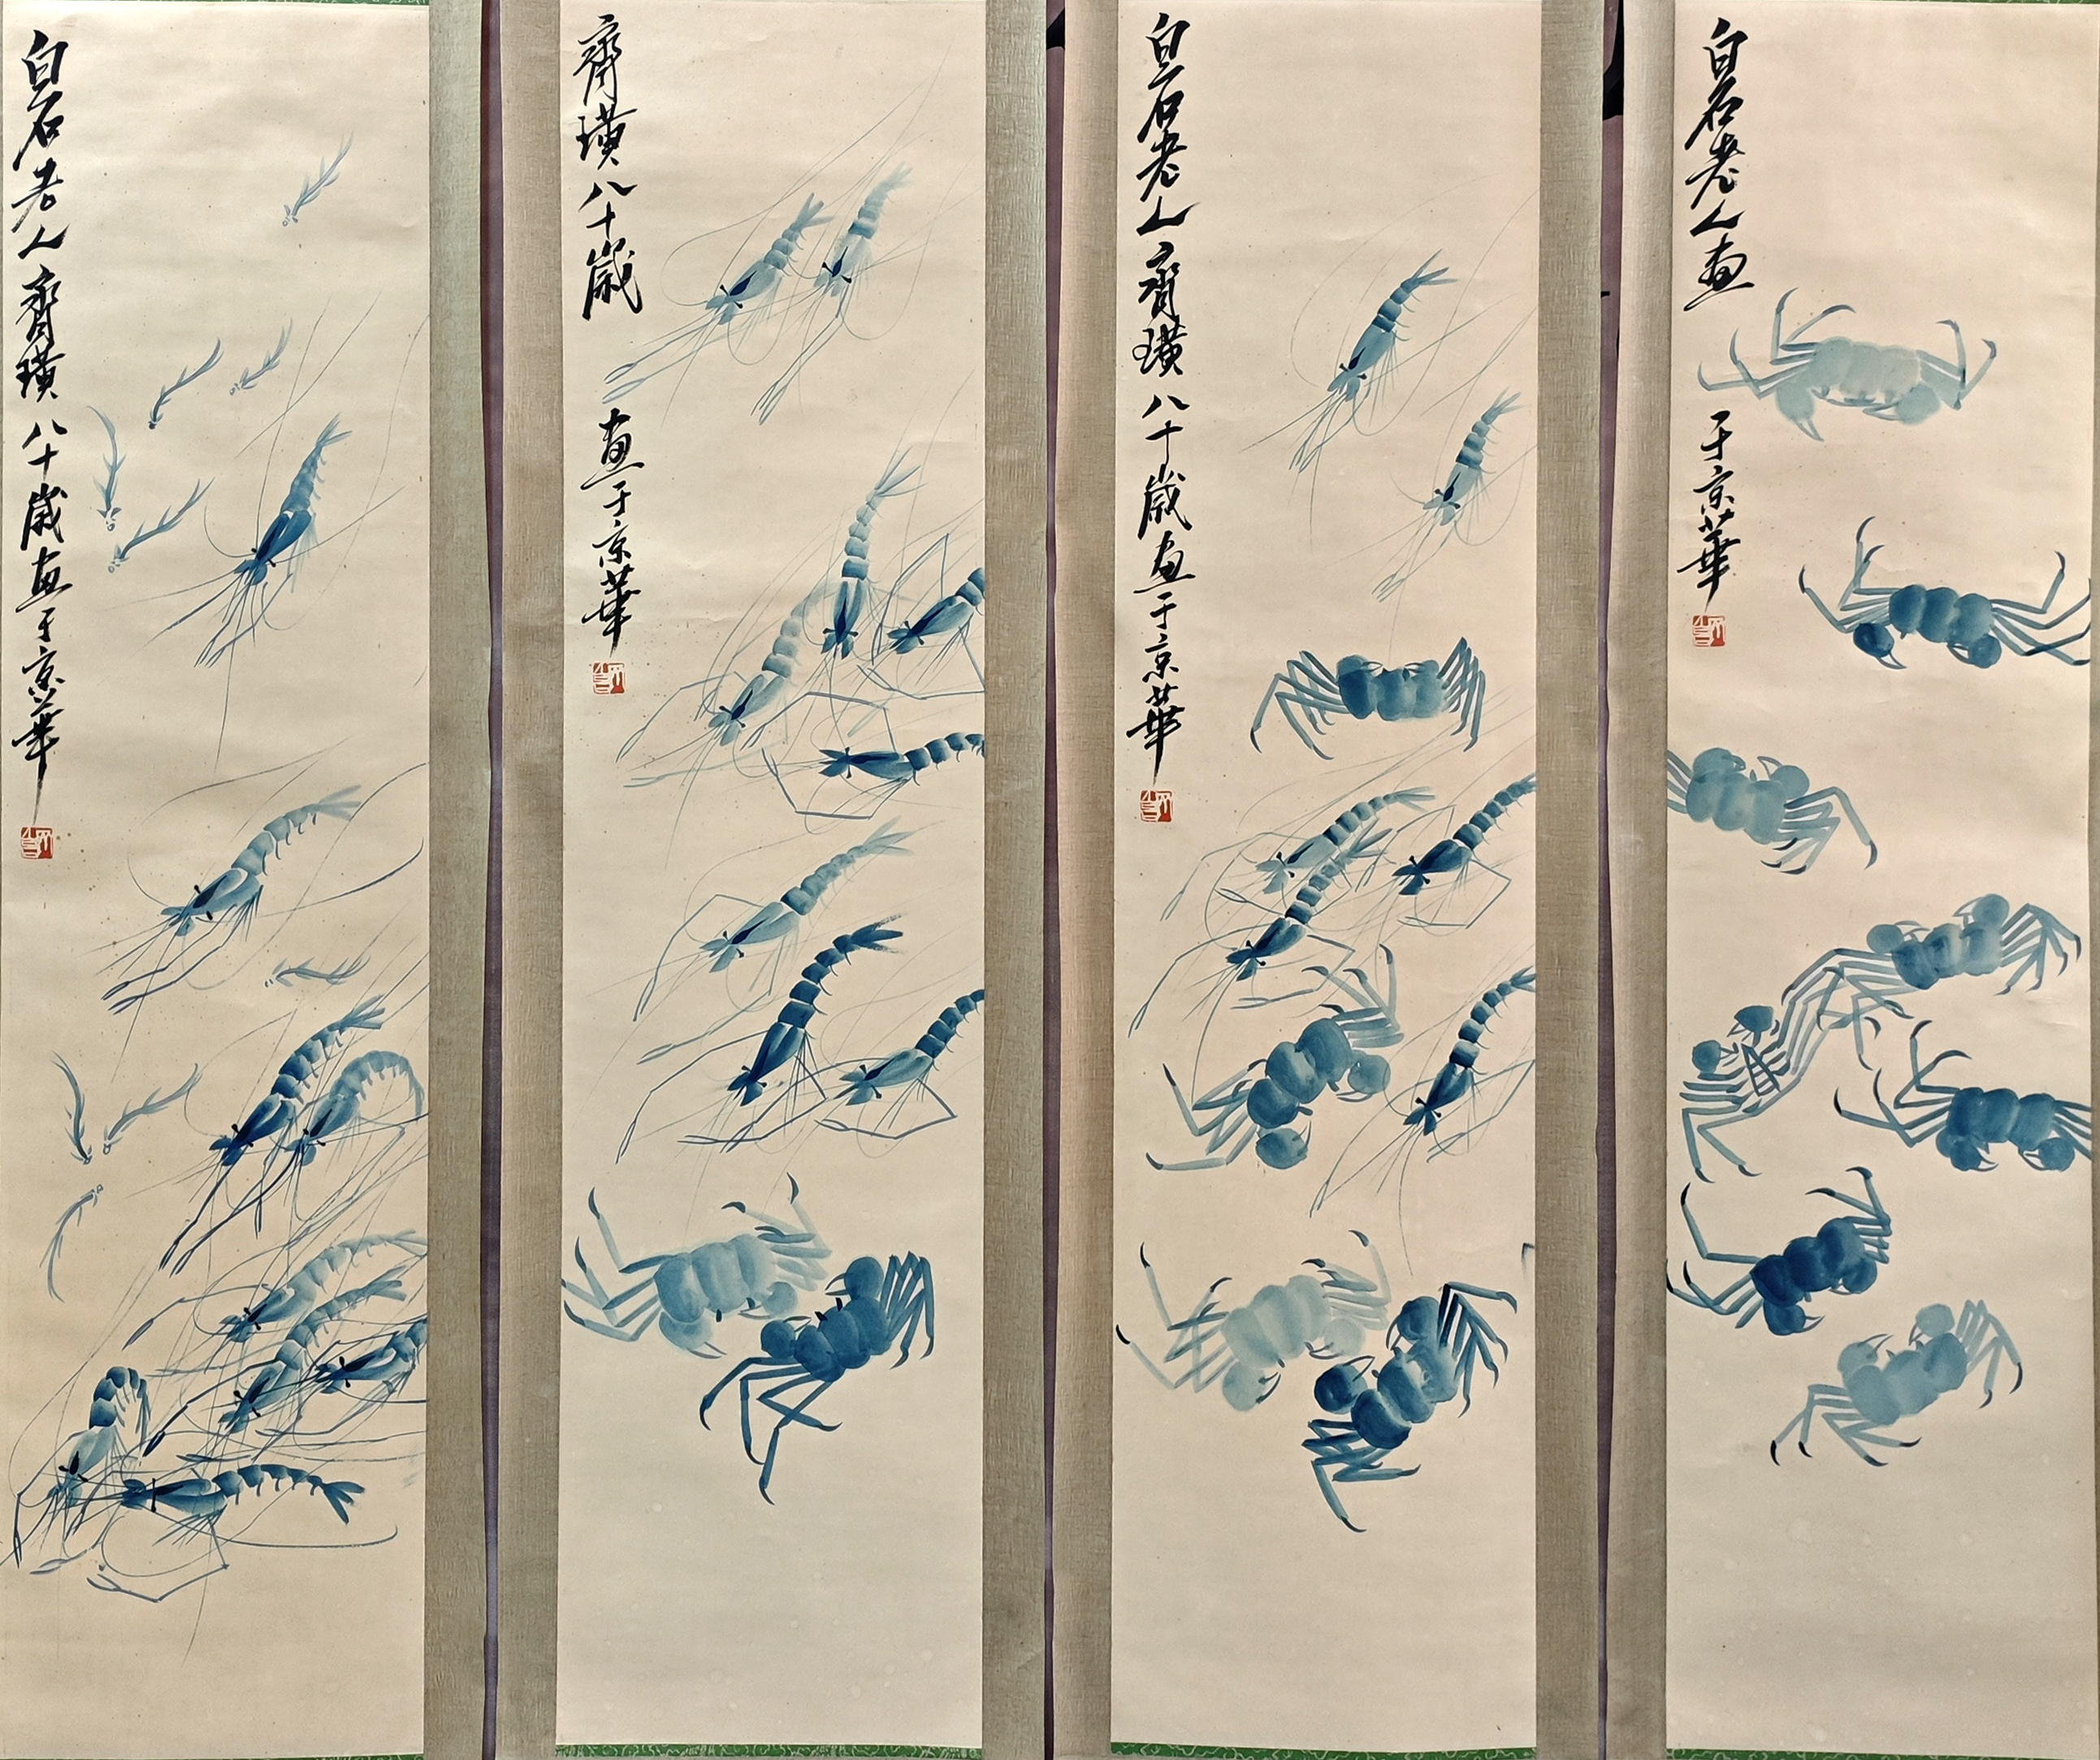 白石老人齊璜八十歲画于京華
齊璜八十歲
画于京華
白石老人齊璜八十歲画于京華
白石老人画
于京華